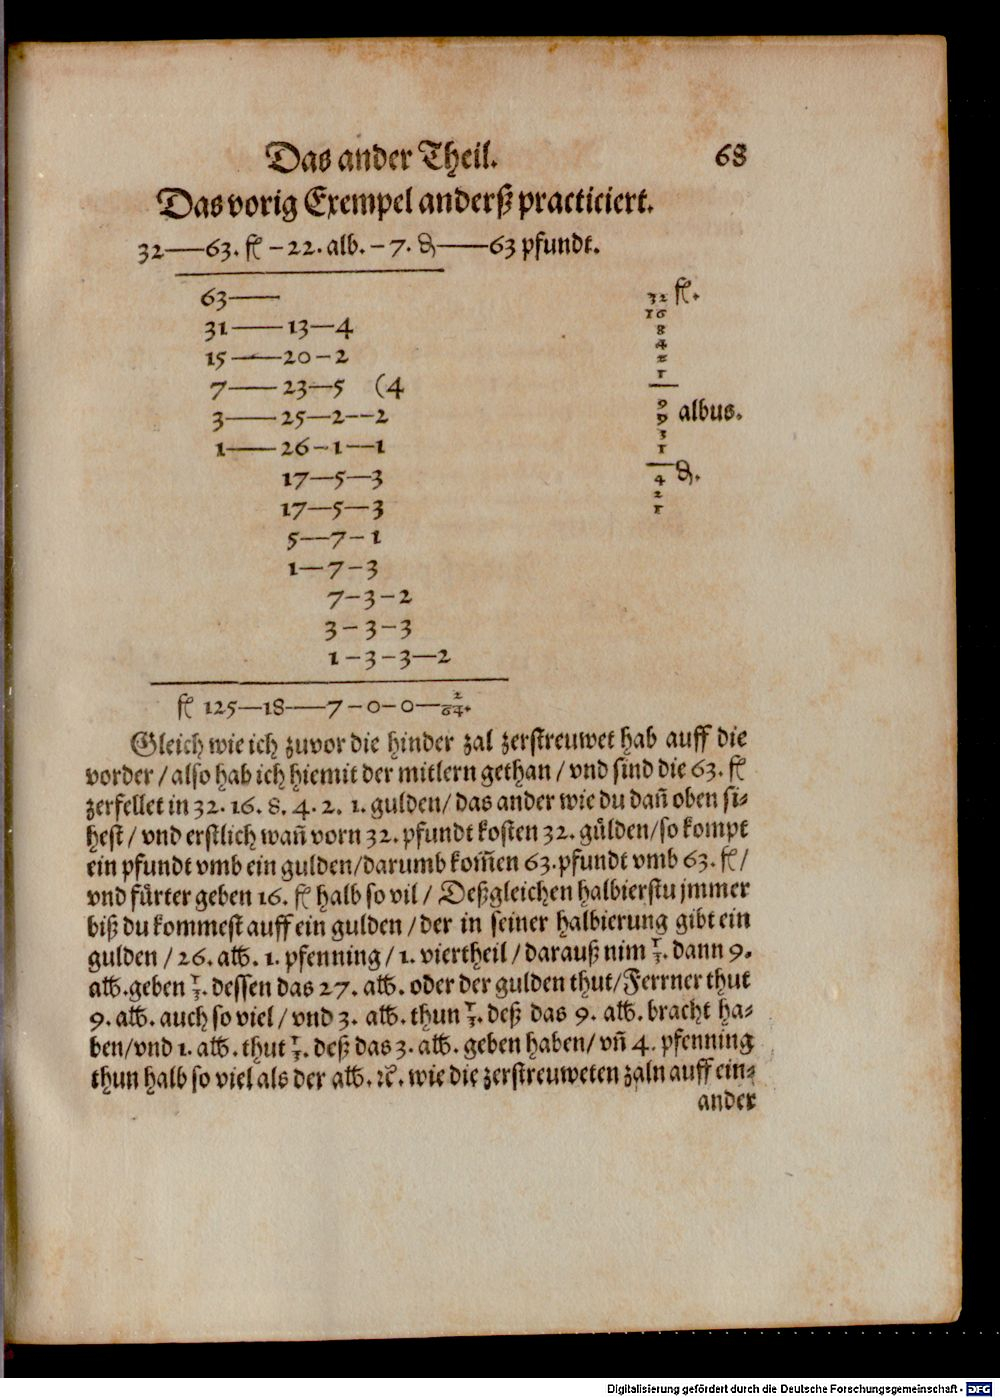 Das ander Theil. 68
Das vorig Exempel anderß practiciert.
32——63. fl – 22. alb. – 7. ₰——63 pfundt.
63——
31——13—4
15——20–2
7——23—5 (4
3——25—2—2
1——26–1—1
17—5—3
17—5—3
5—7–1
1—7–3
7–3–2
3–3–3
1–3–3—2
fl 125—18——7–0–0—2/64.
32 fl.
16
8
4
2
1
9
9 albus.
3
1
4 ₰.
2
1
Gleich wie ich zuvor die hinder zal zerstreuwet hab auff die
vorder / also hab ich hiemit der mitlern gethan / vnd sind die 63. fl
zerfellet in 32. 16. 8. 4. 2. 1. gulden / das ander wie du dañ oben si⸗
hest / vnd erstlich wañ vorn 32. pfundt kosten 32. gülden / so kompt
ein pfundt vmb ein gulden / darumb kom̃en 63. pfundt vmb 63. fl /
vnd fürter geben 16. fl halb so vil / Deßgleichen halbierstu jmmer
biß du kommest auff ein gulden / der in seiner halbierung gibt ein
gulden / 26. alb. 1. pfenning / 1. viertheil / darauß nim 1/3. dann 9.
alb. geben 1/3. dessen das 27. alb. oder der gulden thut / Ferrner thut
9. alb. auch so viel / vnd 3. alb. thun 1/3. deß das 9. alb. bracht ha⸗
ben / vnd 1. alb. thut 1/3. deß das 3. alb. geben haben / vñ 4. pfenning
thun halb so viel als der alb. ꝛc. wie die zerstreuweten zaln auff ein⸗
ander
Digitalisierung gefördert durch die Deutsche Forschungsgemeinschaft - DFG